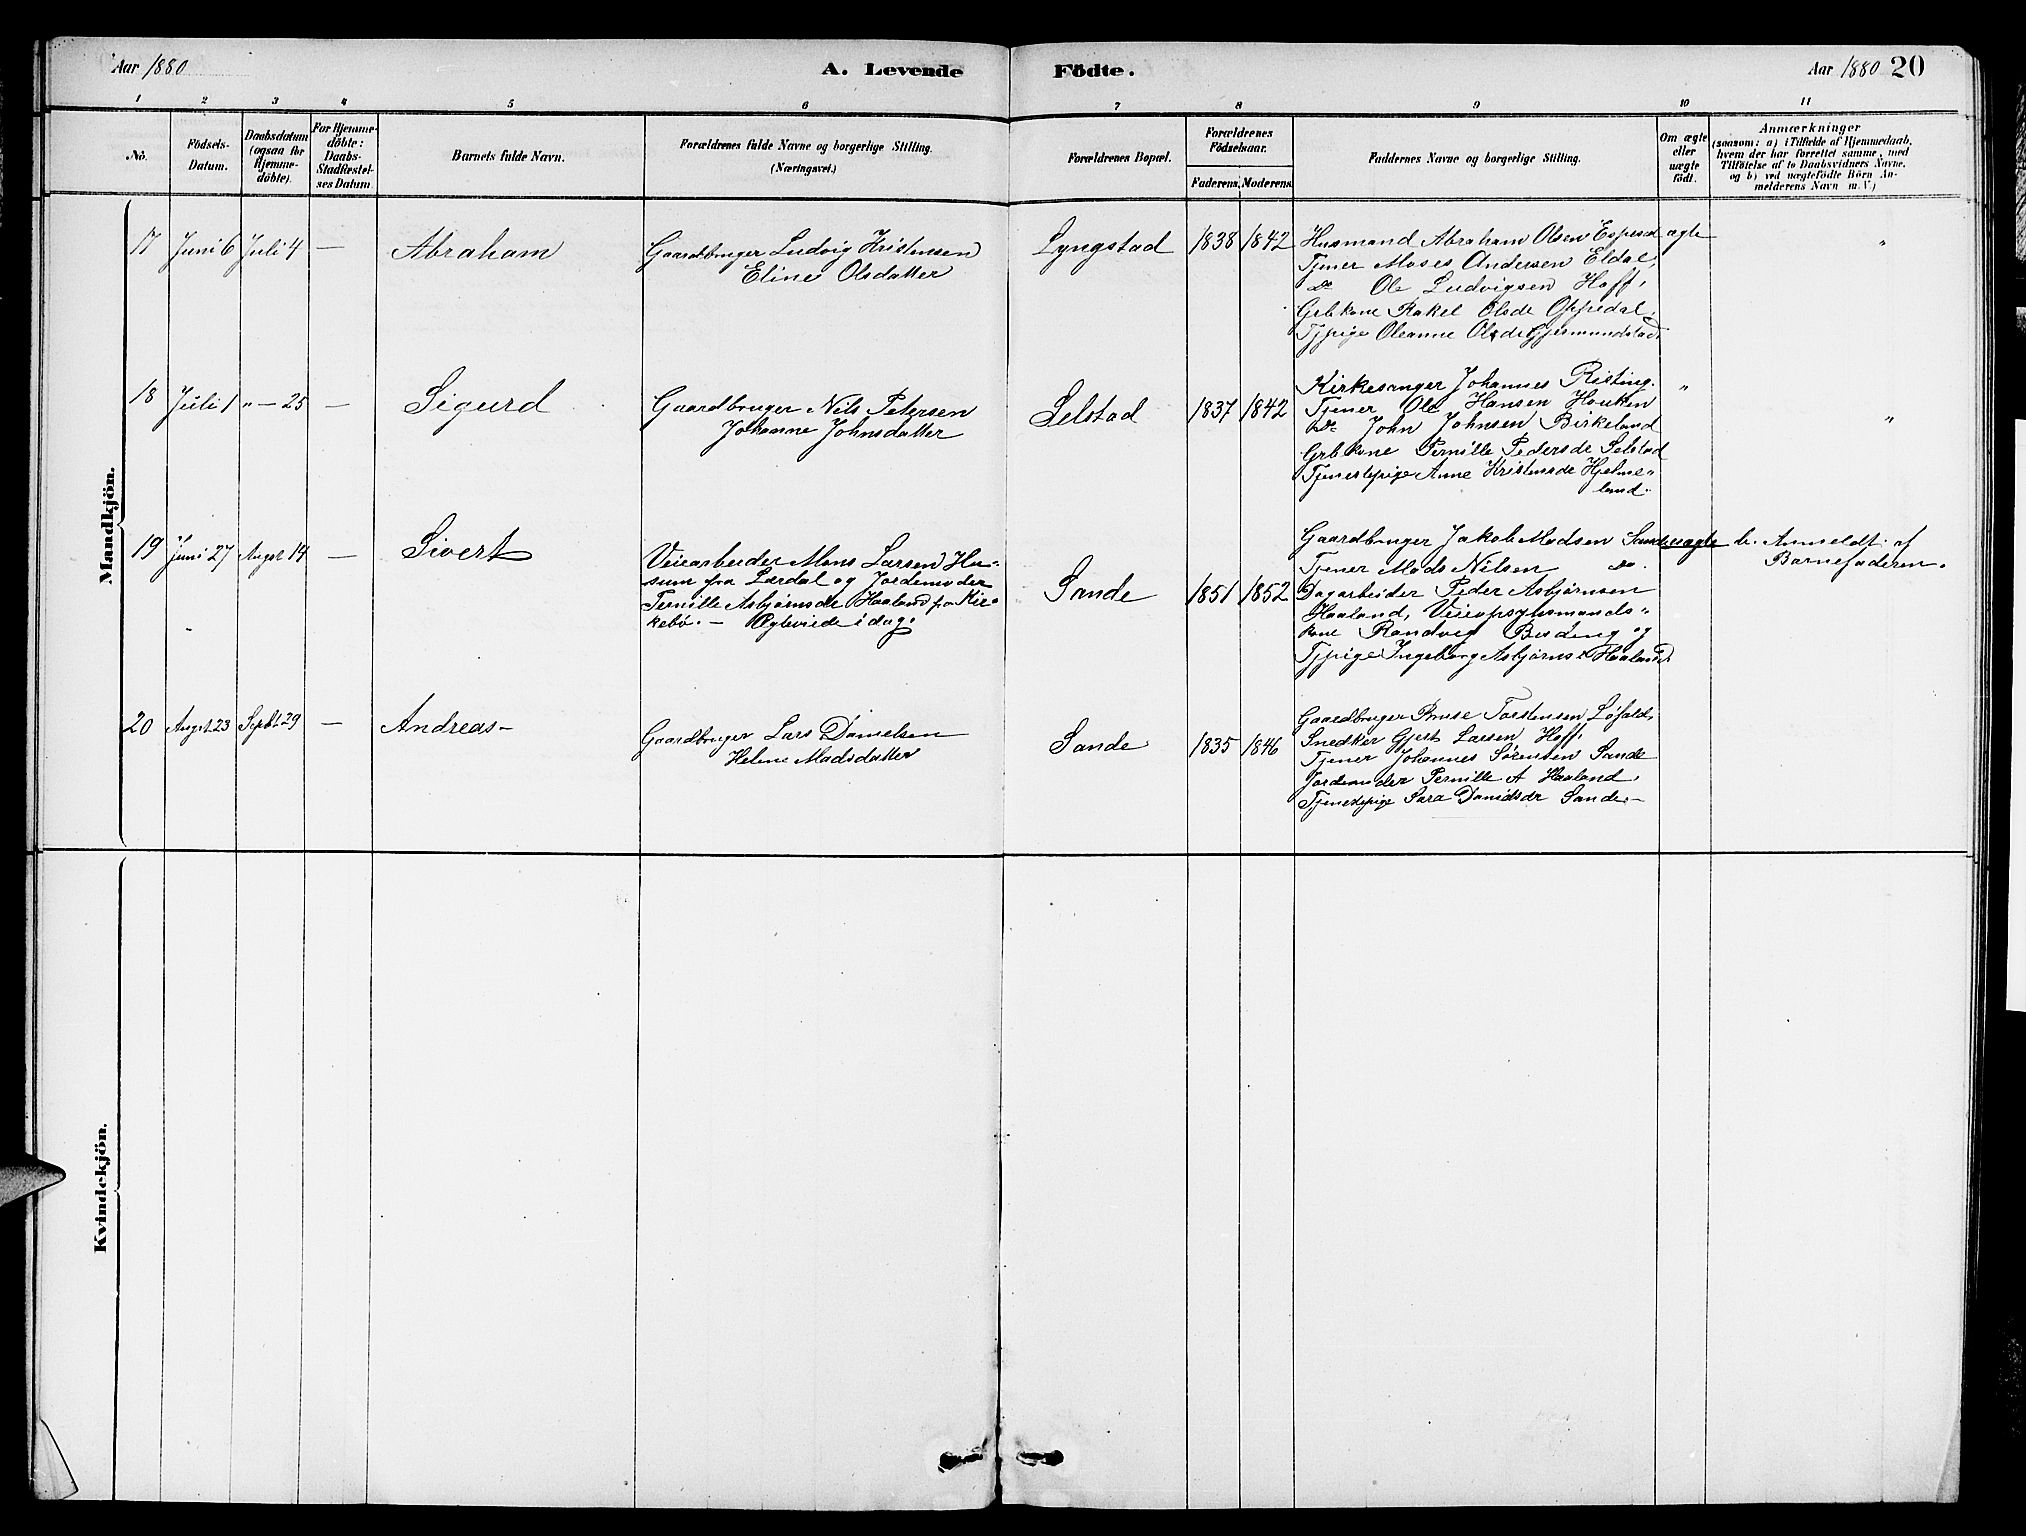 Aar 1880
A. Levende Födte.
Aar 1880 20
1 2 3 4 5 6 7 8 9 10 11
No.
Födsels-
Datum.
Daabsdatum
(ogsaa for
Hjemme-
döbte).
For Hjemme-
döbte:
Daabs-
Stadfæstel-
ses Datum.
Barnets fulde Navn.
Forældrenes fulde Navne og borgerlige Stilling.
(Næringsvei.)
Forældrenes Bopæl.
Forældrenes
Födselsaar.
Faderens. Moderens.
Faddernes Navne og borgerlige Stilling.
Om ægte
eller
uægte
födt.
Anmærkninger
(saasom: a) i Tilfælde af Hjemmedaab,
hvem der har forrettet samme, med
Tilföielse af to Daabsvidners Navne,
og b) ved uægtefödte Börn An-
melderens Navn m. V.)
Mandkjön.
17 Juni 6 Juli 4 — Abraham
Gaardbruger Ludvig Kristensen
Eline Olsdatter
Lyngstad 1838 1842
Husmand Abraham Olsen Espesd
Tjener Moses Andersen Eldal,
Do Ole Ludvigsen Hoff,
Grb kone Rakel Olsdr Oppedal,
Tjpige Oleanne Olsdr Gjesmundstad.
ægte "
18 Juli 1 " — 25 — Sigurd
Gaardbruger Nils Petersen
Johanne Johnsdatter
Selstad 1837 1842
Kirkesanger Johannes Risting.
Tjener Ole Hansen Houken
Do John Johnsen Birkeland
Grb kone Pernille Pedersdr Selstad
Tjenestepige Anne Kristensdr Hjelme-
land.
" "
19 Juni 27 Augst 14 — Sivert
Veiearbeider Mons Larsen Hu-
sum fra Lærdal og Jordemoder
Pernille Asbjørnsdr Haaland fra Kir-
kebø. — Ægteviede i dag.
Sande 1851 1852
Gaardbruger Jakob Madsen Sande
Tjener Mads Nilsen Do.
Dagarbeider Peder Asbjørnsen
Haaland, Veieopsynsmands-
kone Randveg og
Tjpige Ingeborg Asbjørnsdr Haaland
uægte b. Anmeldt af
Barnefaderen.
20 Augst 23 Septbr 29 — Andreas —
Gaardbruger Lars Danielsen
Helene Madsdatter
Sande 1835 1846
Gaardbruger Torstensen Løfald,
Snedker Gjert Larsen Hoff,
Tjener Johannes Sørensen Sande
Jordemoder Pernille A Haaland,
Tjenestepige Sara Davidsdr Sande. —
Kvindekjön.